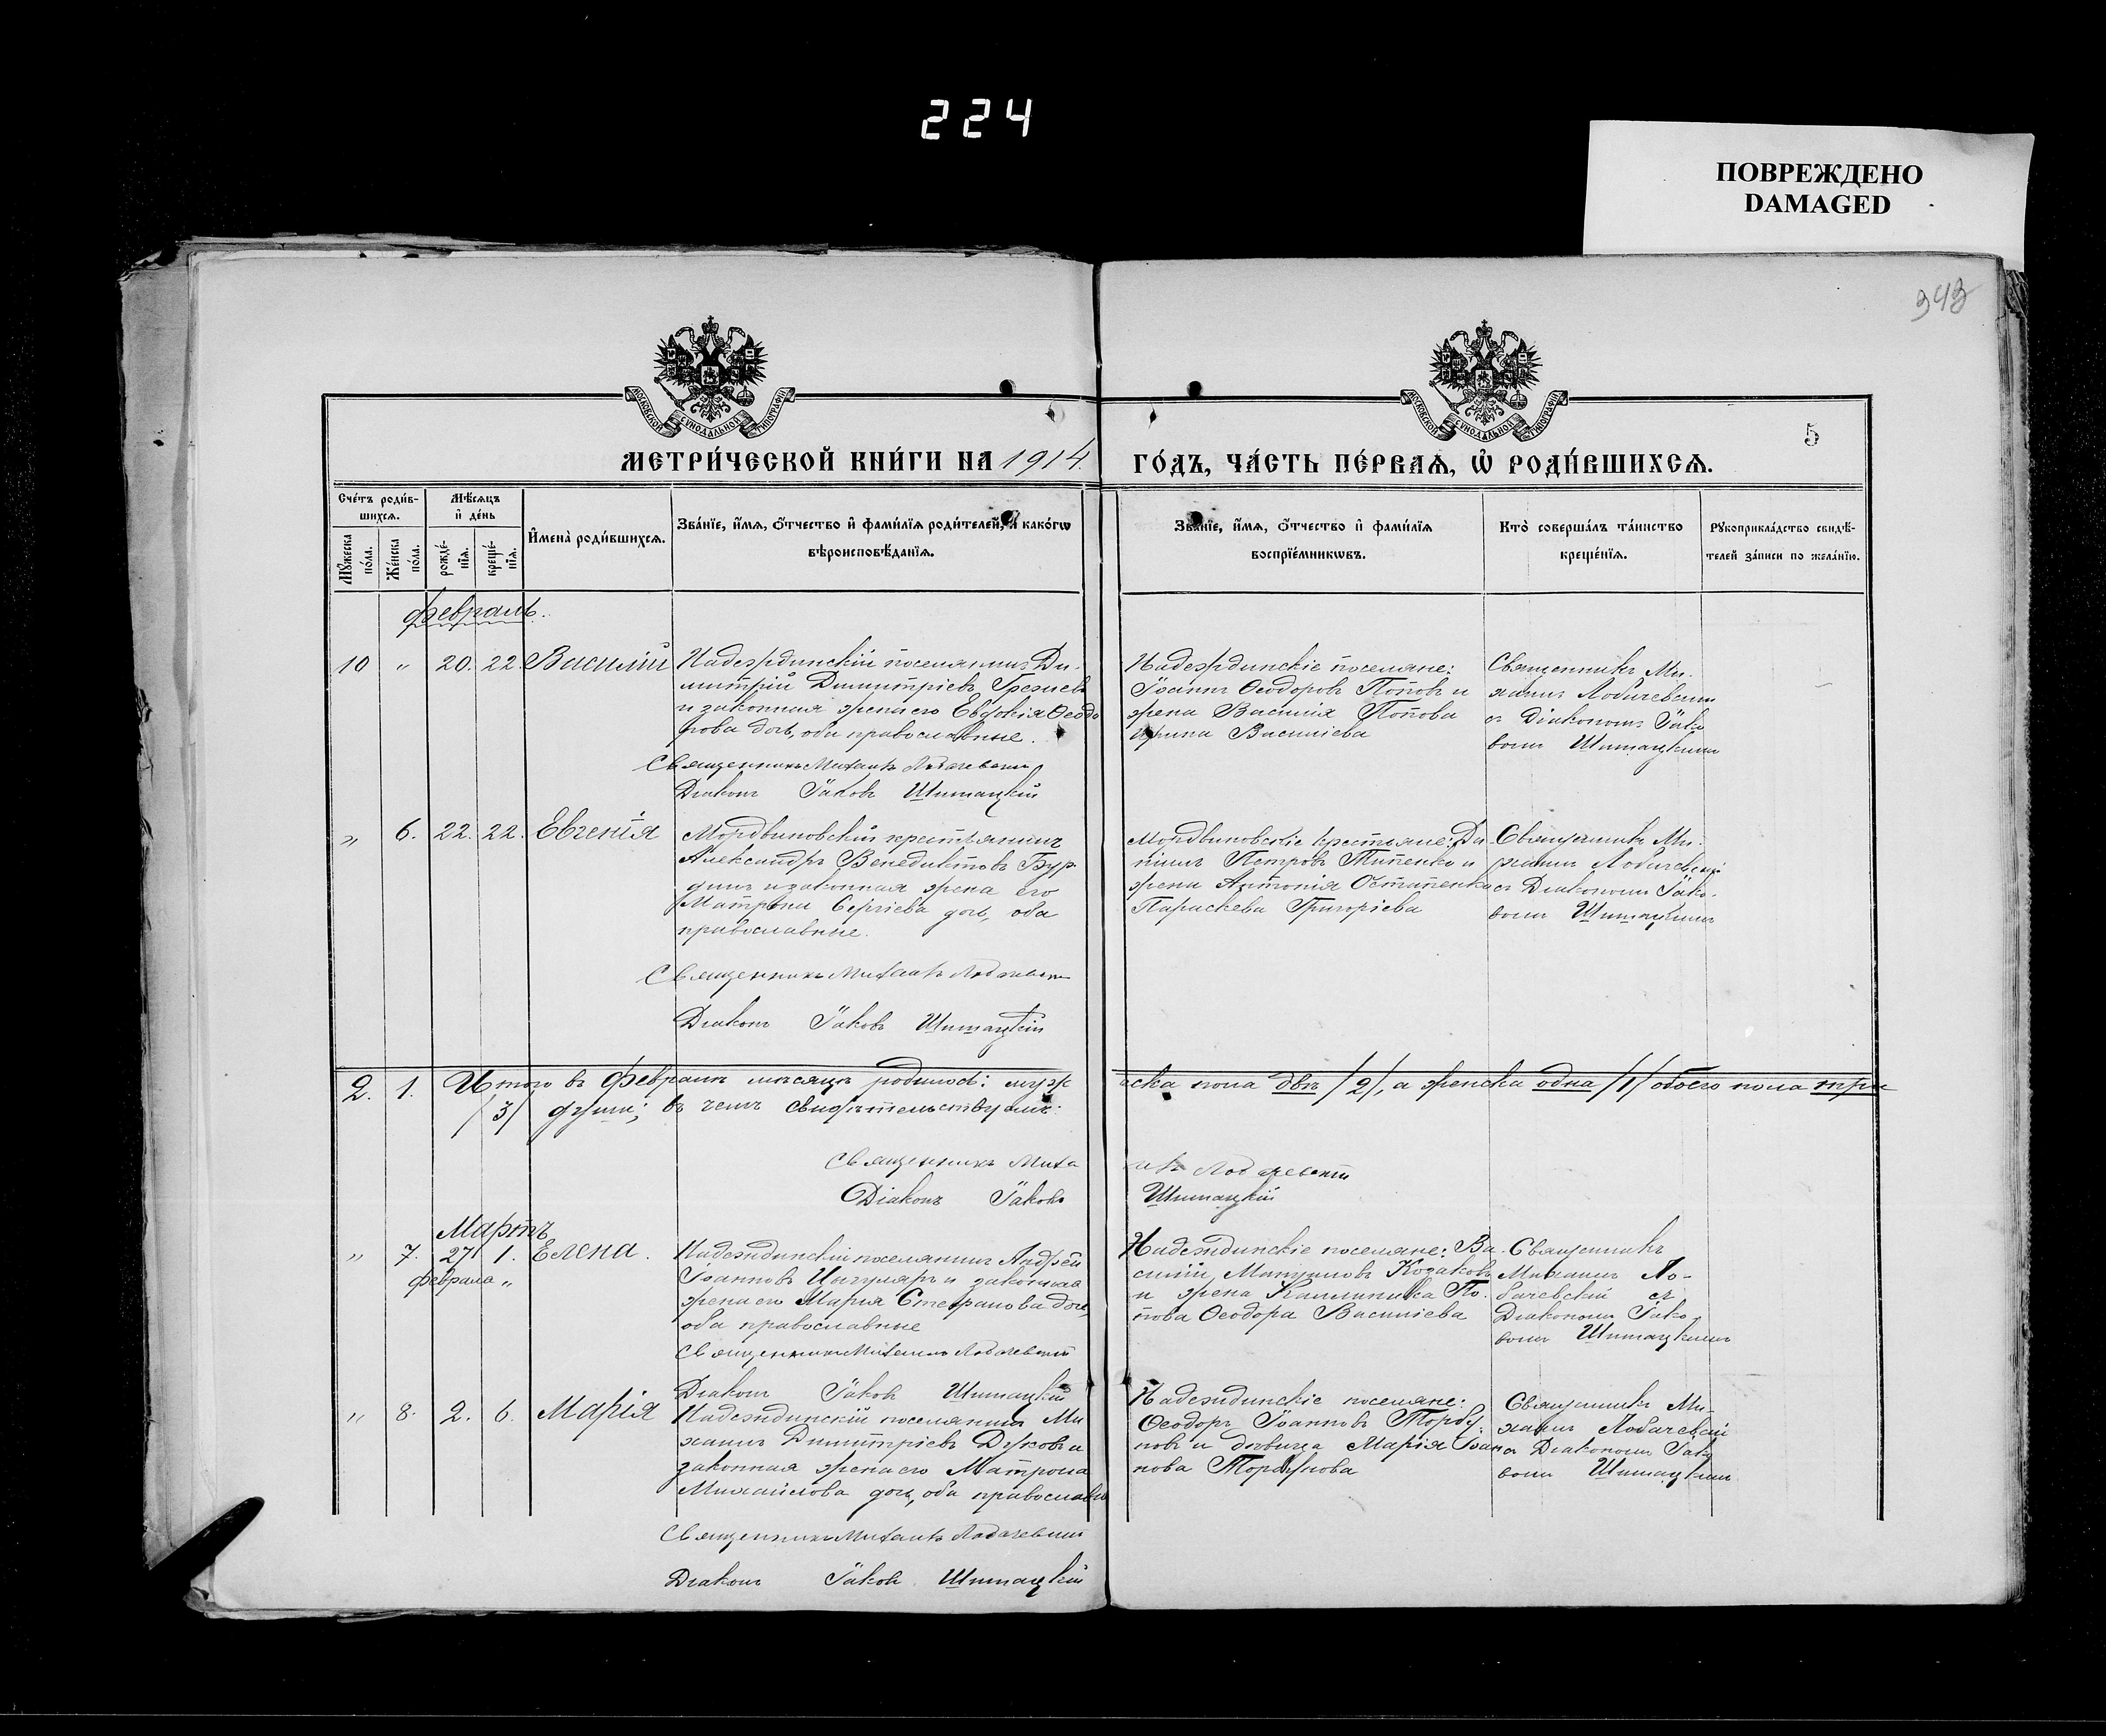 224
ПОВРЕЖДЕНО
DAMAGED
343
МОСКОВСКОЙ СѴНОДАЛЬНОЙ ТИПОГРАФІИ
МОСКОВСКОЙ СѴНОДАЛЬНОЙ ТИПОГРАФІИ
5
МЕТРИ́ЧЕСКОЙ КНИ́ГИ НА 1914 ГО́ДЪ, ЧА́СТЬ ПЕ́РВАѦ, Ѡ҆ РОДИ́ВШИХСѦ.
Сче́тъ роди́в-
шихсѧ.
Мꙋ́жеска по́ла.
Же́нска по́ла.
Мѣ́сѧцъ
и҆ де́нь
рожде́-
нїѧ.
креще́-
нїѧ.
И҆мена̀ роди́вшихсѧ.
Зва́нїе, и҆́мѧ, ѻ҆́тчество и҆ фами́лїѧ роди́телей, и҆ како́гѡ
вѣроисповѣ́данїѧ.
Зва́нїе, и҆́мѧ, ѻ҆́тчество и҆ фами́лїѧ
воспрїе́мникѡвъ.
Кто̀ соверша́лъ та́инство
креще́нїѧ.
Рꙋкоприкла́дство свидѣ́-
телей за́писи по жела́нїю.
Февраль.
10 " 20. 22. Василій
Надеждинскій поселянинъ Ди-
митрій Димитріевъ
и законная жена его Евдокія Ѳеодо
рова дочь, оба православные.
Священникъ Михаилъ Лобачевскій
Діаконъ Іаковъ Шишацкій
Надеждинскіе поселяне:
Іоаннъ Ѳеодоровъ Поповъ и
жена Василія Попова
Ирина Василіева
Священникъ Ми-
хаилъ Лобачевскій
съ Діакономъ Іако
вомъ Шишацкимъ
" 6. 22. 22. Евгенія
Мордвиновскій крестьянинъ
Александръ Венедиктовъ Бур-
динъ и законная жена его
Матрона Сергіева дочь, оба
православные.
Священникъ Михаилъ Лобачевскій
Діаконъ Іаковъ Шишацкій
Мордвиновскіе крестьяне: Да
ніилъ Петровъ Типенко и
жена Антонія Остапенка
Параскева Григоріева
Священникъ Ми-
хаилъ Лобачевскій
съ Діакономъ Іако-
вомъ Шишацкимъ
2. 1. Итого въ Февралѣ мѣсяцѣ родилось: муж
еска пола двѣ /2/, а женска одна /1/ обоего пола три
/3/ души; въ чемъ свидѣтельствуемъ:
Священникъ Миха
илъ Лобачевскій
Діаконъ Іаковъ
Шишацкій
Мартъ
" 7. 27 1. Елена.
Февраля "
Надеждинскій поселянинъ Андрей
Іоанновъ и законная
жена его Марія Стефанова дочь,
оба православные
Священникъ Михаилъ Лобачевскій
Діаконъ Іаковъ Шишацкій
Надеждинскіе поселяне: Ва-
силій Мануиловъ Козаковъ
и жена Каллиника По-
пова Ѳеодора Василіева
Священникъ
Михаилъ Ло-
бачевскій съ
Діакономъ Іако
вомъ Шишацкимъ
" 8. 2. 6. Марія
Надеждинскій поселянинъ Ми
хаилъ Димитріевъ Дуковъ и
законная жена его Матрона
Михайлова дочь, оба православн
Священникъ Михаилъ Лобачевскій
Діаконъ Іаковъ Шишацкій
Надеждинскіе поселяне:
Ѳеодоръ Іоанновъ Торбу-
новъ и дѣвица Марія Іоан
нова Торбунова
Священникъ Ми-
хаилъ Лобачевскій
съ Діакономъ Іако
вомъ Шишацкимъ